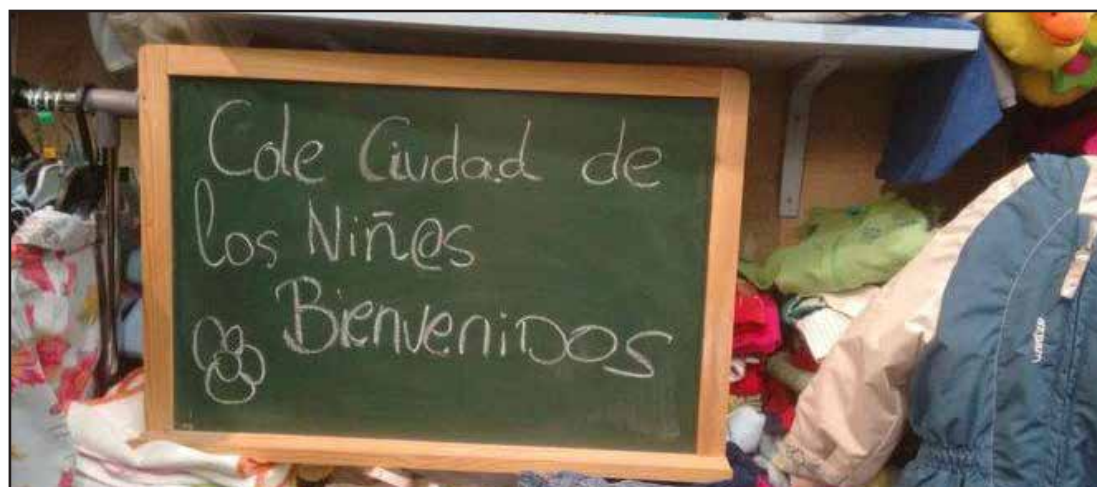 Cole Ciudad de
los Niñ@s
BienveniDOS